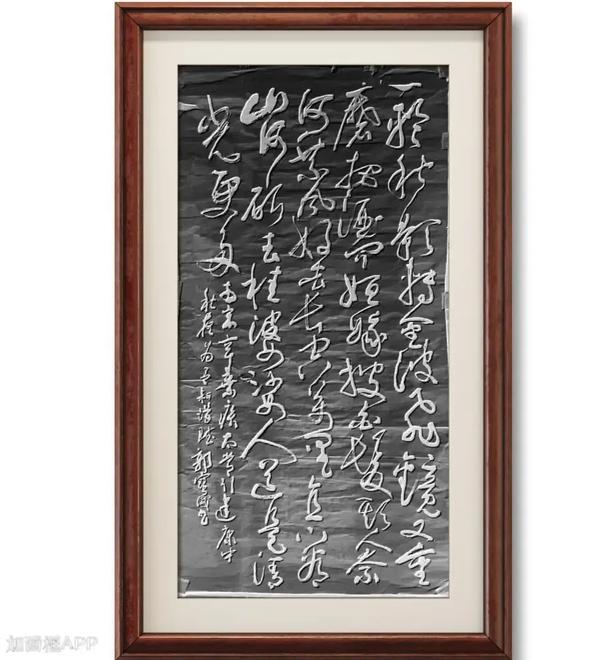 一輪秋影轉金波飛鏡又重
磨把酒问姮娥被白髮欺人奈
何乘風好去长空万里直下看
山河斫去桂婆娑人道是清
光更多 南宋辛棄疾太常引建康中
秋夜为吕叔潜賦 郭書
加画框APP